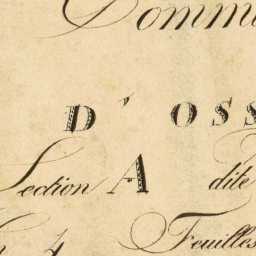 Comm
D' OSS
Section A dite
4 Feuilles